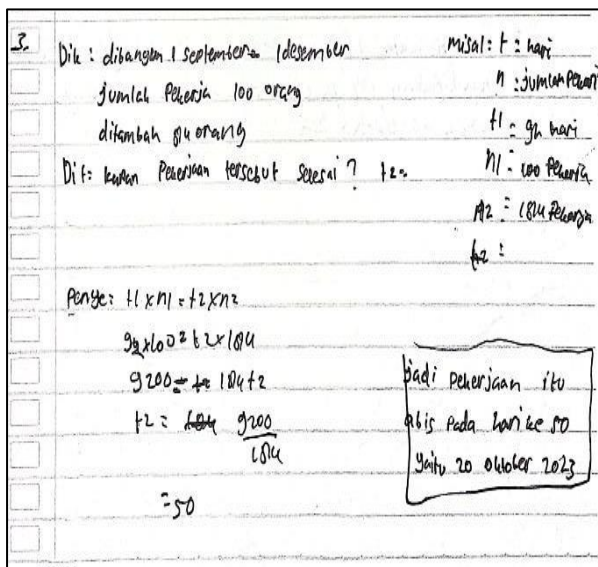 3.
Dik : dibangun 1 september - 1 desember
jumlah Pekerja 100 orang
ditambah 84 orang
Dit : kapan Pekerjaan tersebut selesai ? t2 =
misal : t : hari
n : jumlah Pekerja
t1 = 92 hari
n1 = 100 Pekerja
n2 = 184 Pekerja
t2 :
Penye : t1 x n1 = t2 x n2
92 x 100 = t2 x 184
9200 = 184 t2
t2 = 9200
184
= 50
jadi pekerjaan itu
abis pada hari ke 50
yaitu 20 oktober 2023